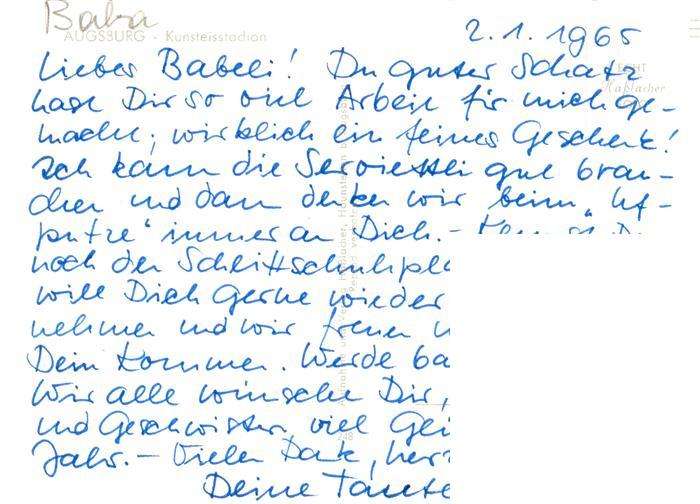 Baba
AUGSBURG - Kunsteisstadion
2.1.1965
Lieber Babeli! Du guter Schatz
hast Dir so viel Arbeit für mich ge-
macht, wirklich ein feines Geschenk!
Ich kann die Serviettli gut brau-
chen und dann denken wir beim „Uf-
putze" immer an Dich.-
noch den Schlittschuhpl
will Dich gerne wieder
nehmen und wir freuen
Dein Kommen. Werde ba
Wir alle wünschen Dir,
und Geschwister viel Gl
Jahr.- Vielen Dank, her
Deine Tante